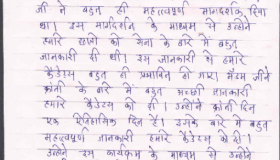 जी ने बहुत ही महत्वपूर्ण मार्गदर्शन दिया
था। इस मार्गदर्शन के माध्यम से उन्होंने
हमारे छात्रों को सेना के बारे में बहुत
जानकारी दी थी। इस जानकारी से हमारे
कैडेटस बहुत ही प्रभावित हो गए। मॅडम जीने
क्रांती के बारे में बहुत अच्छी जानकारी
हमारे कैडेटस को दी। उन्होंने क्रांती दिन
एक ऐतिहासिक दिन है। इसके बारे में बहुत
महत्वपूर्ण जानकारी हमारे कैडेटस को दी।
उन्होंने इस कार्यक्रम के माध्यम से उन्होंने